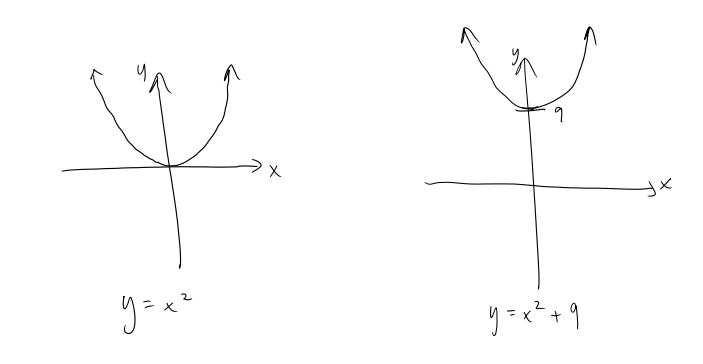 y
x
y = x²
y
9
x
y = x² + 9